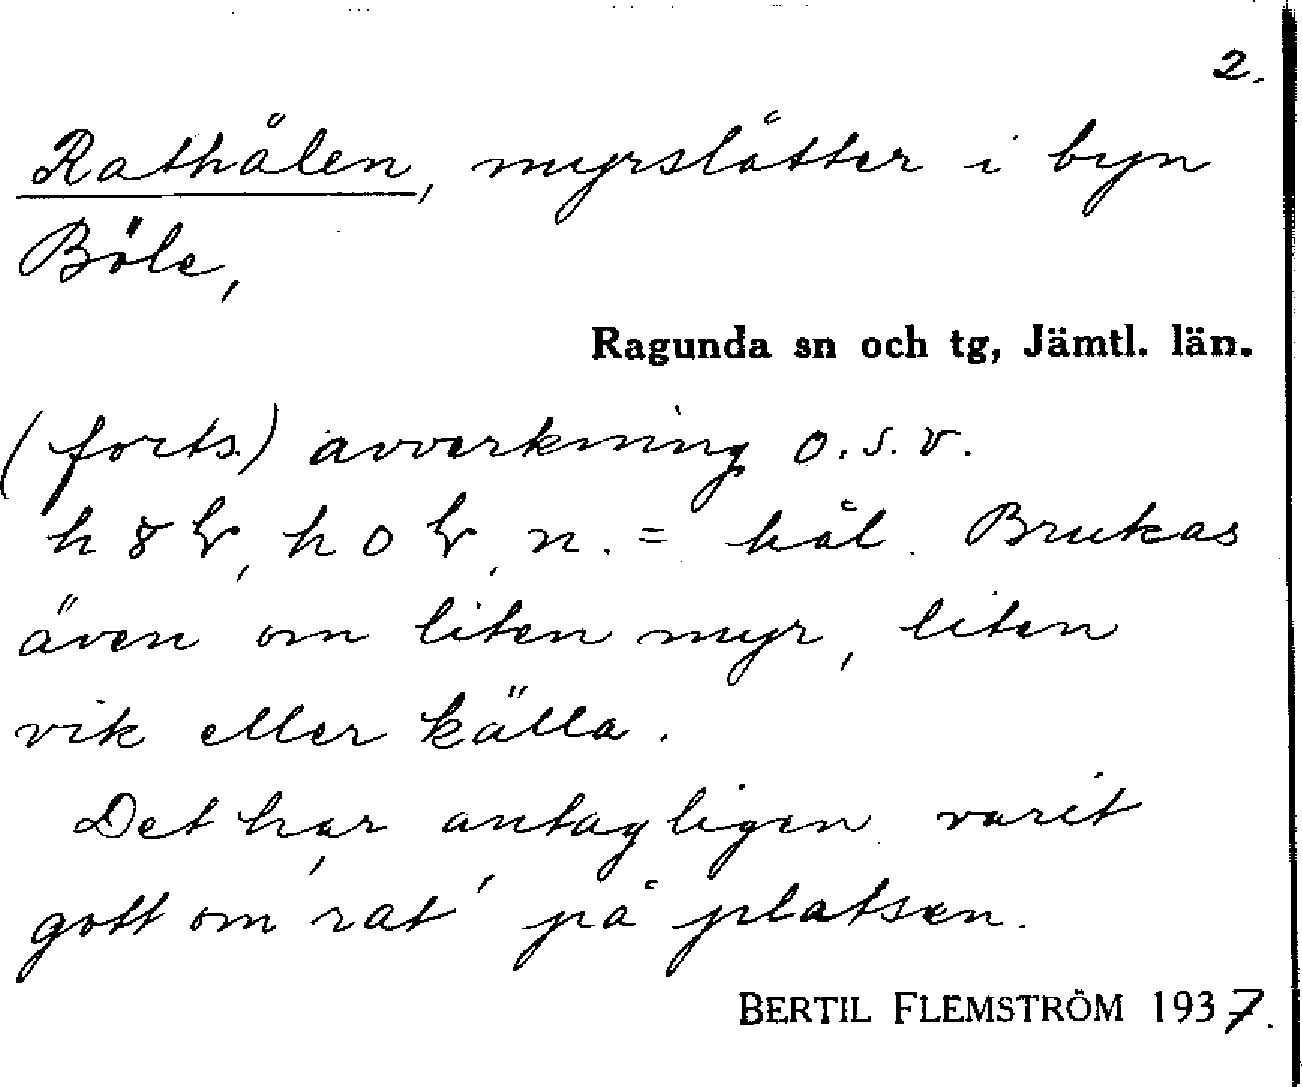 2.
Rathålen, myrslåtter i byn
Böle,
Ragunda sn och tg, Jämtl. län.
(forts.) avverkning o.s.v.
n. = hål. Brukas
även om liten myr, liten
vik eller källa.
Det har antagligen varit
gott om 'rat' på platsen.
BERTIL FLEMSTRÖM 1937.